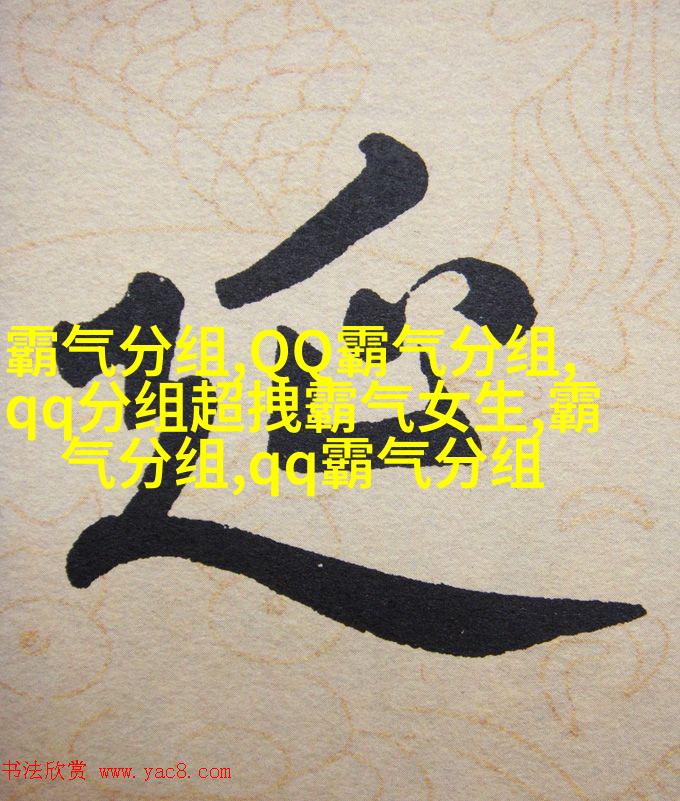 霸气分组,QQ霸气分组,
qq分组超拽霸气女生,霸
气分组,qq霸气分组
书法欣赏 www.yac8.com